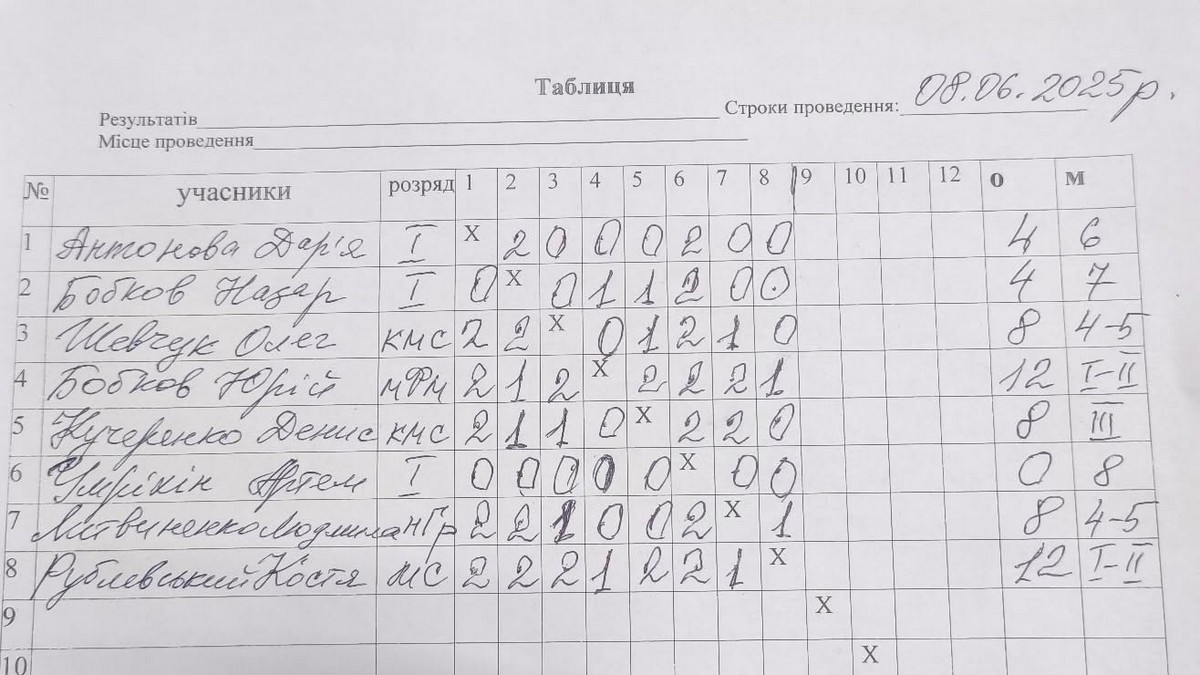 Таблиця
Результатів Строки проведення: 08.06.2025р.
Місце проведення
№ учасники розряд 1 2 3 4 5 6 7 8 9 10 11 12 о м
1 Антонова Дар'я I X 2 0 0 0 2 0 0 4 6
2 Бобков Назар I 0 X 0 1 1 2 0 0 4 7
3 Шевчук Олег кмс 2 2 X 0 1 2 1 0 8 4-5
4 Бобков Юрій мРм 2 1 2 X 2 2 2 1 12 I-II
5 Кучеренко Денис кмс 2 1 1 0 X 2 2 0 8 III
6 Умрікін Артем I 0 0 0 0 0 X 0 0 0 8
7 Литвиненко Людмила НГр 2 2 1 0 0 2 X 1 8 4-5
8 Рублевський Костя мс 2 2 2 1 2 2 1 X 12 I-II
9 X
10 X